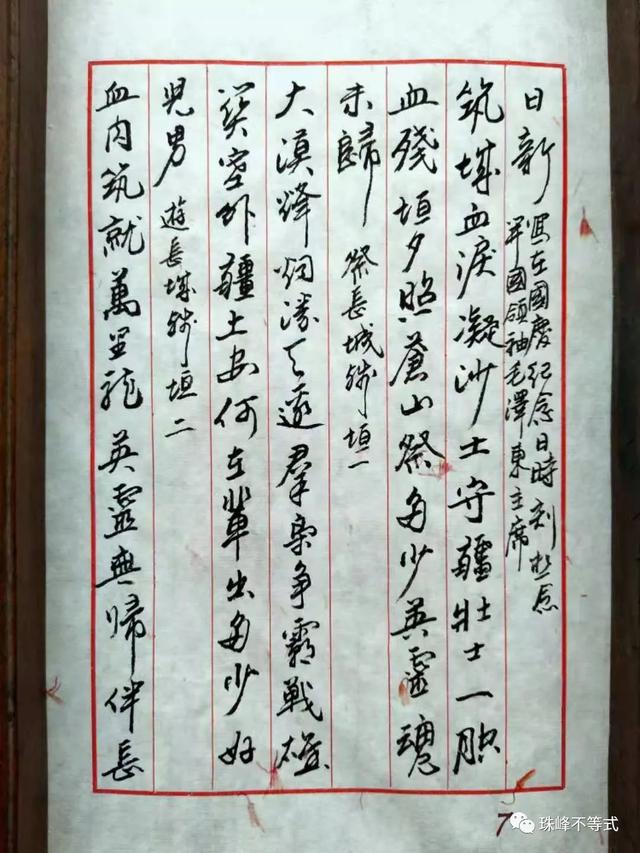 日新 寫在國慶紀念日時刻想念
國領袖毛澤東主席
筑城血淚凝沙土守疆壯士一腔
血殘垣夕照蒼山祭多少英靈魂
未歸 祭長城殘垣一
大漠烽烟天邊羣梟爭霸戰雄
關塞外疆土安何在輩出多少好
兒男 遊長城殘垣二
血肉筑就萬里龍英靈無歸伴長
7
珠峰不等式